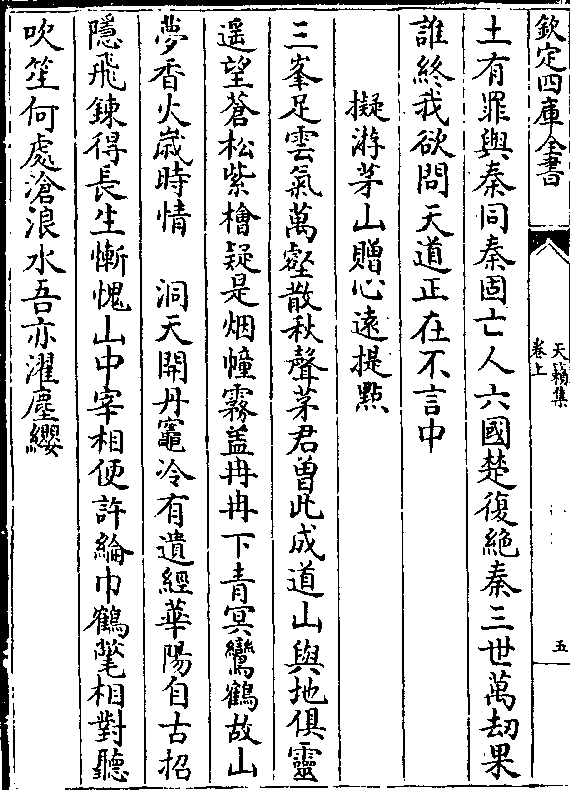 欽定四庫全書
天籟集
卷上
五
土有罪與秦同秦固亡人六國楚復絶秦三世萬刼果
誰終我欲問天道正在不言中
擬游茅山贈心遠提點
三峯足雲氣萬壑散秋聲茅君曽此成道山與地俱靈
遥望蒼松紫檜疑是烟幢霧盖冉冉下青冥鸞鶴故山
夢香火嵗時情　洞天開丹竈冷有遺經華陽自古招
隱飛鍊得長生慚愧山中宰相便許綸巾鶴氅相對聽
吹笙何處滄浪水吾亦濯塵纓